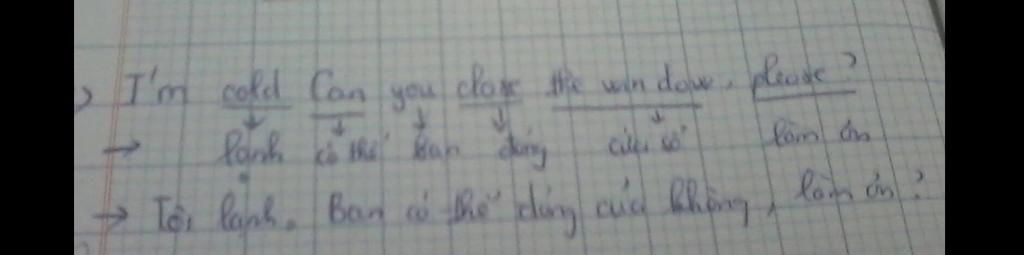 I'm cold Can you close the window, please?
→ lạnh có thể bạn đóng cửa sổ làm ơn
→ Tôi lạnh. Bạn có thể đóng cửa không, làm ơn?